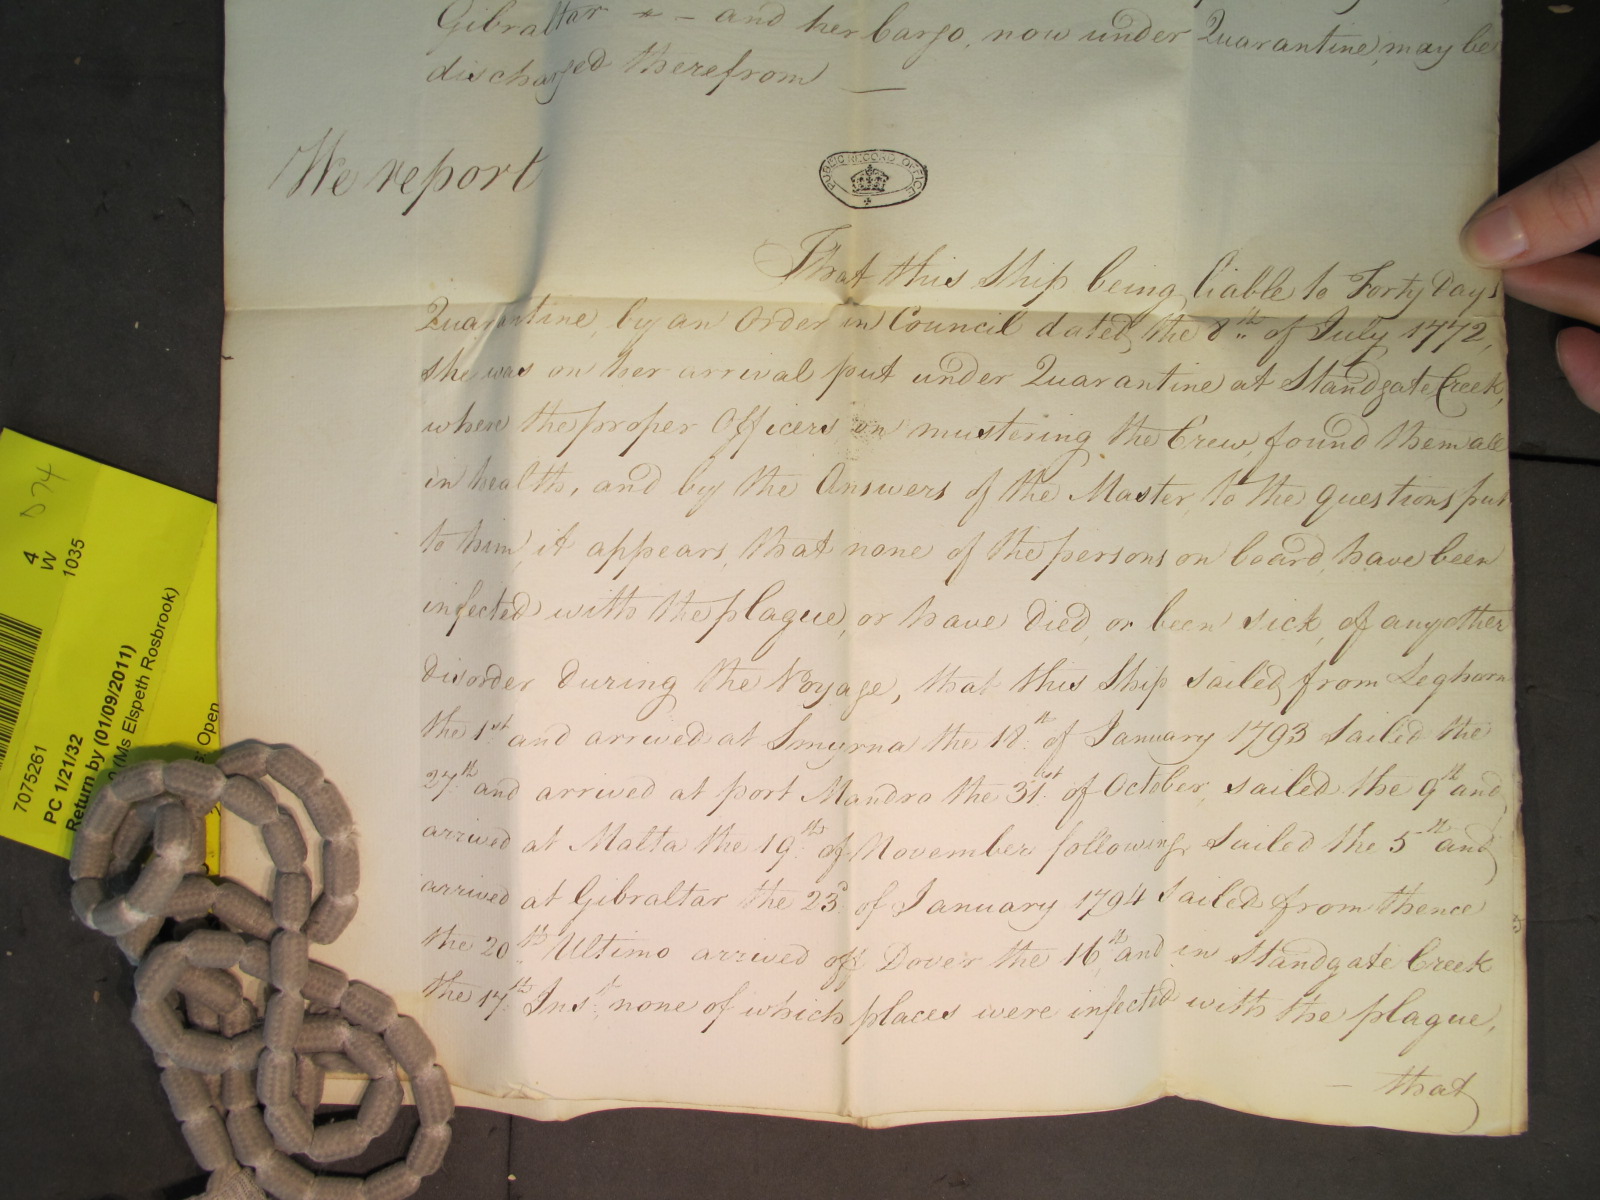 Gibraltar - - and her Cargo, now under Quarantine, may be
discharged therefrom —
We report
PUBLIC RECORD OFFICE
That this Ship being liable to Forty Days
Quarantine, by an Order in Council dated the 8th of July 1772,
she was on her arrival put under Quarantine at Standgate Creek,
where the proper Officers on mustering the Crew, found them all
in health, and by the Answers of the Master, to the questions put
to him, it appears, that none of the persons on board, have been
infected with the plague, or have died, or been sick, of any other
disorder during the Voyage, that this Ship sailed from Leghorn
the 1st and arrived at Smyrna the 18th of January 1793 Sailed the
27th and arrived at port Mandra the 31st of October, sailed the 9th and
arrived at Malta the 19th of November following, sailed the 5th and
arrived at Gibraltar the 23d of January 1794 Sailed from thence
the 20th Ultimo arrived off Dover the 16th and in Standgate Creek
the 17th Inst. none of which places were infected with the plague,
— that
D74
4
W
1035
7075261
PC 1/21/32
Return by (01/09/2011)
(Ms Elspeth Rosbrook)
Open